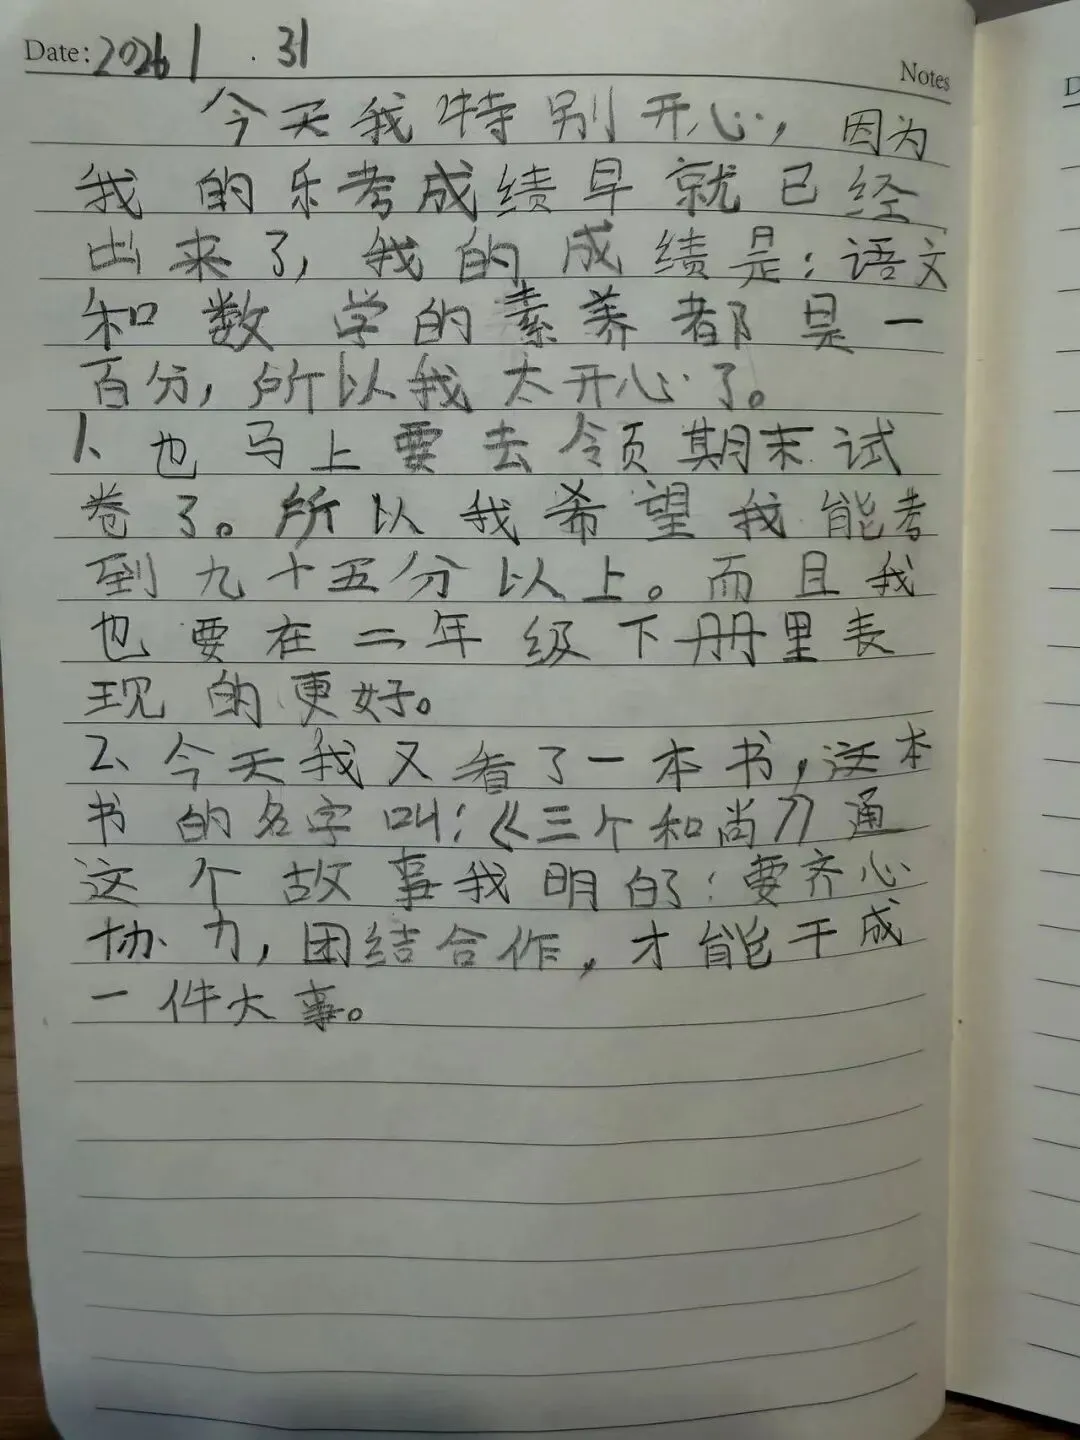 Date: 2026 1 . 31
Notes
今天我特别开心，因为
我的乐考成绩早就已经
出来了，我的成绩是：语文
和数学的素养都是一
百分，所以我太开心了。
1、也马上要去领期末试
卷了。所以我希望我能考
到九十五分以上。而且我
也要在二年级下册里表
现的更好。
2、今天我又看了一本书，这本
书的名字叫：《三个和尚》通
这个故事我明白了：要齐心
协力，团结合作，才能干成
一件大事。